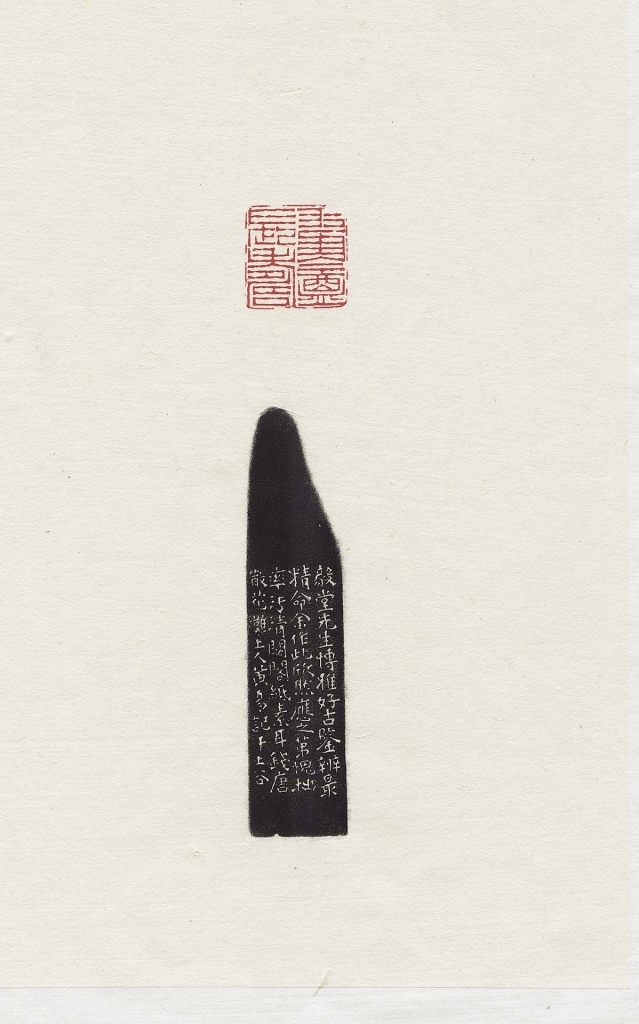 毅堂先生博雅好古鑒辨最
精命余作此欣然應之第愧拙
率汚清閟閣紙素耳錢唐
散花灘上人黃易記于上谷